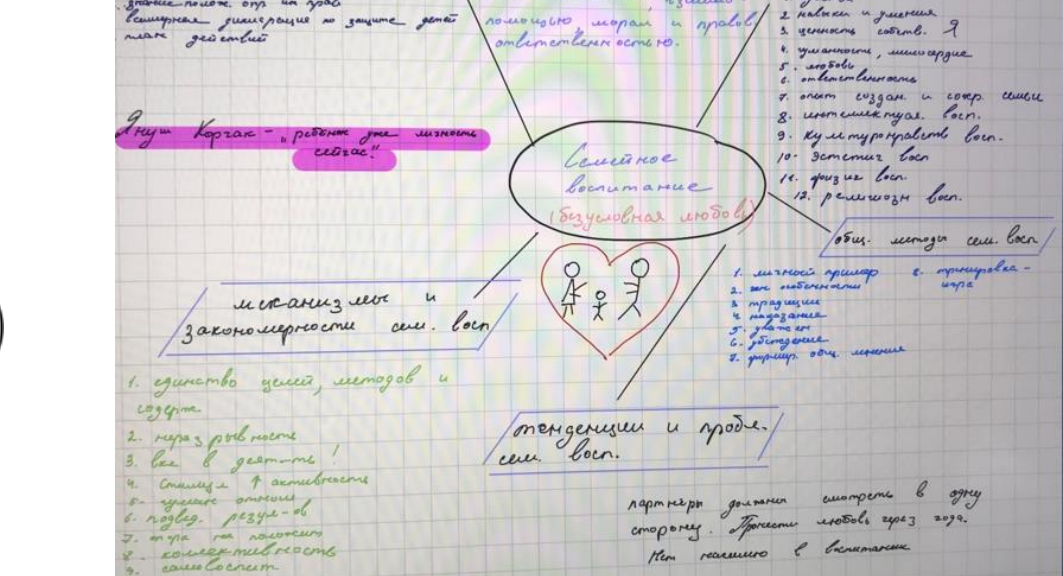 всемирная декларация по защите детей
план действий
помощью, морали и правов.
ответственностью.
2 навыки и умения
3. ценность собств. Я
4. гуманность, милосердие
5. любовь
6. ответственность
7. опыт создан. и сохр. семьи
8. интеллектуал. восп.
9. культуронравств восп.
10- эстетич восп
11. физич восп.
12. религиозн восп.
Януш Корчак - "ребёнок уже личность
сейчас"
Семейное
воспитание
(безусловная любовь)
общ. методы сем. восп
1. личност пример
3 традиции
4 наказание
5. уважен
6. убеждение
7. формир. общ. мнения
8. тренировка -
игра
механизмы и
закономерности сем. восп
1. единство целей, методов и
содерж.
2. неразрывность
3. вкл в деят-ть!
4. Стимул ↑ активность
5- гуман отнош
6. подвед. резул-ов
7- опора на положит
8. коллективность
9. самовоспит
тенденции и пробл.
сем. восп.
партнёры должны смотреть в одну
сторону. Пронести любовь через года.
Нет насилию в воспитании